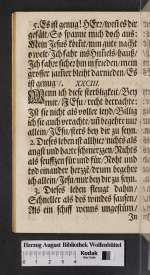 5. Es ist genug! HErr, wenn es dir
gefällt/ So spanne mich doch aus:
Mein Jesus kömmt/ nun gute nacht
o welt/ Ich fahr ins Himmels-hauß/
Ich fahre sicher hin in frieden/ mein
grosser jammer bleibt darnieden. Es
ist genug/.
XXCIII.
WEnn ich diese sterbligkeit/ Bey
mir/ JEsu/ recht betrachte:
Ist sie nicht als voller leyd/ Billig
ich sie auch verachte: und begehre nur
allein/ JEsu/ stets bey dir zu seyn.
2. Dieses leben ist alhier/ nichts als
angst und harte schmertzen: Nichts
als seufftzen für und für/ Noht und
tod einander hertzt: drum begehr
ich allein/ Jesu/ nur bey dir zu seyn.
3. Dieses leben fleugt dahin/
Schneller als des windes sausen/
Als ein schiff wenns ungestüm/
In
Herzog August Bibliothek Wolfenbüttel